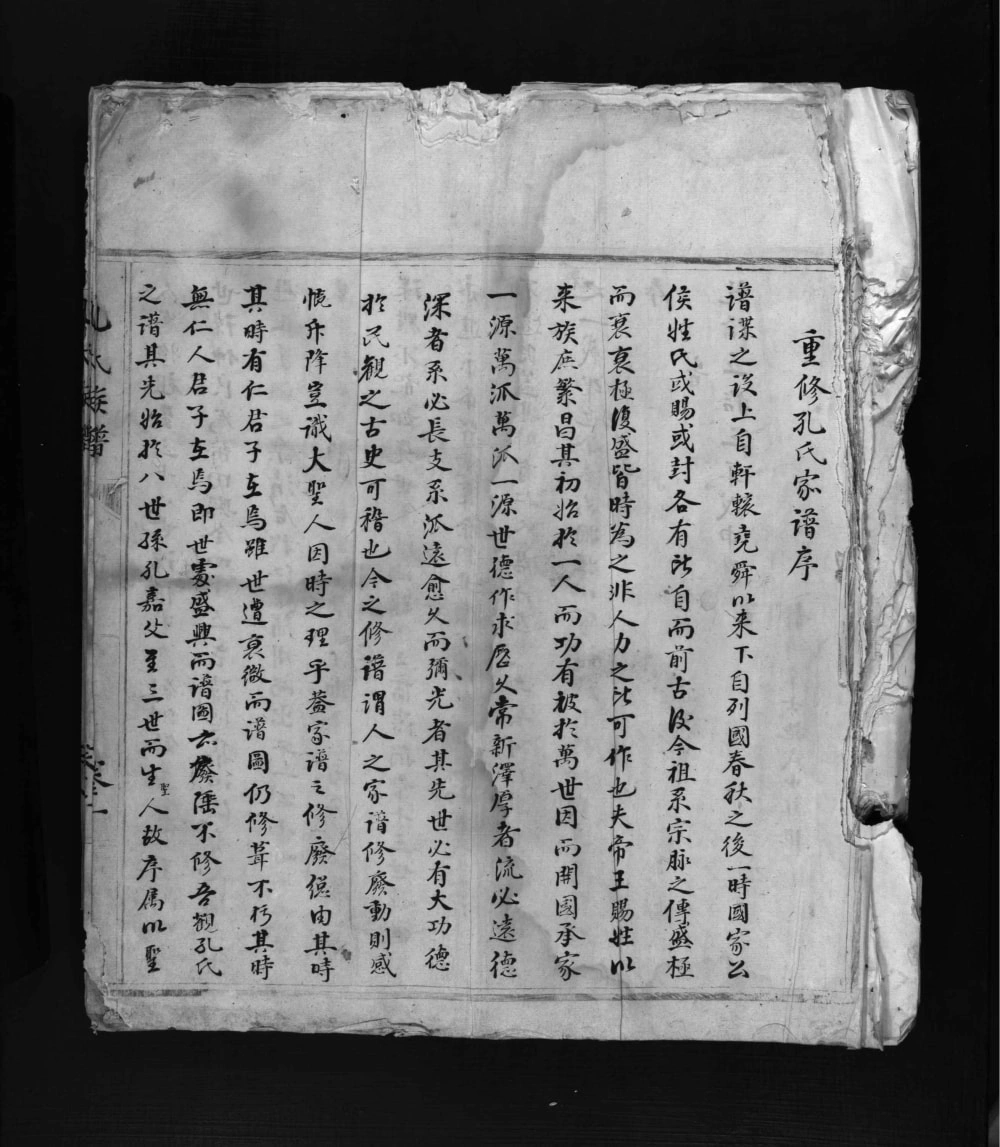 重修孔氏家譜序
譜諜之說上自軒轅堯舜以来下自列國春秋之後一時國家公
侯姓氏或賜或封各有所自而前古後今祖系宗脉之傳盛極
而衰衰極復盛皆時為之非人力之所可作也夫帝王賜姓以
来族庶繁昌其初始於一人而功有被於萬世因而開國承家
一源萬派萬派一源世德作求歷久常新澤厚者流必遠德
深者系必長支系派遠愈久而彌光者其先世必有大功德
於民觀之古史可稽也今之修譜謂人之家譜修廢動則感
慨升降豈識大聖人因時之理乎蓋家譜之修廢總由其時
其時有仁君子在焉雖世遭衰微而譜圖仍修葺不朽其時
無仁人君子在焉即世處盛興而譜圖亦廢墜不修吾觀孔氏
之譜其先始於八世孫孔嘉父至三世而生聖人故序属以聖
孔氏族譜
卷一